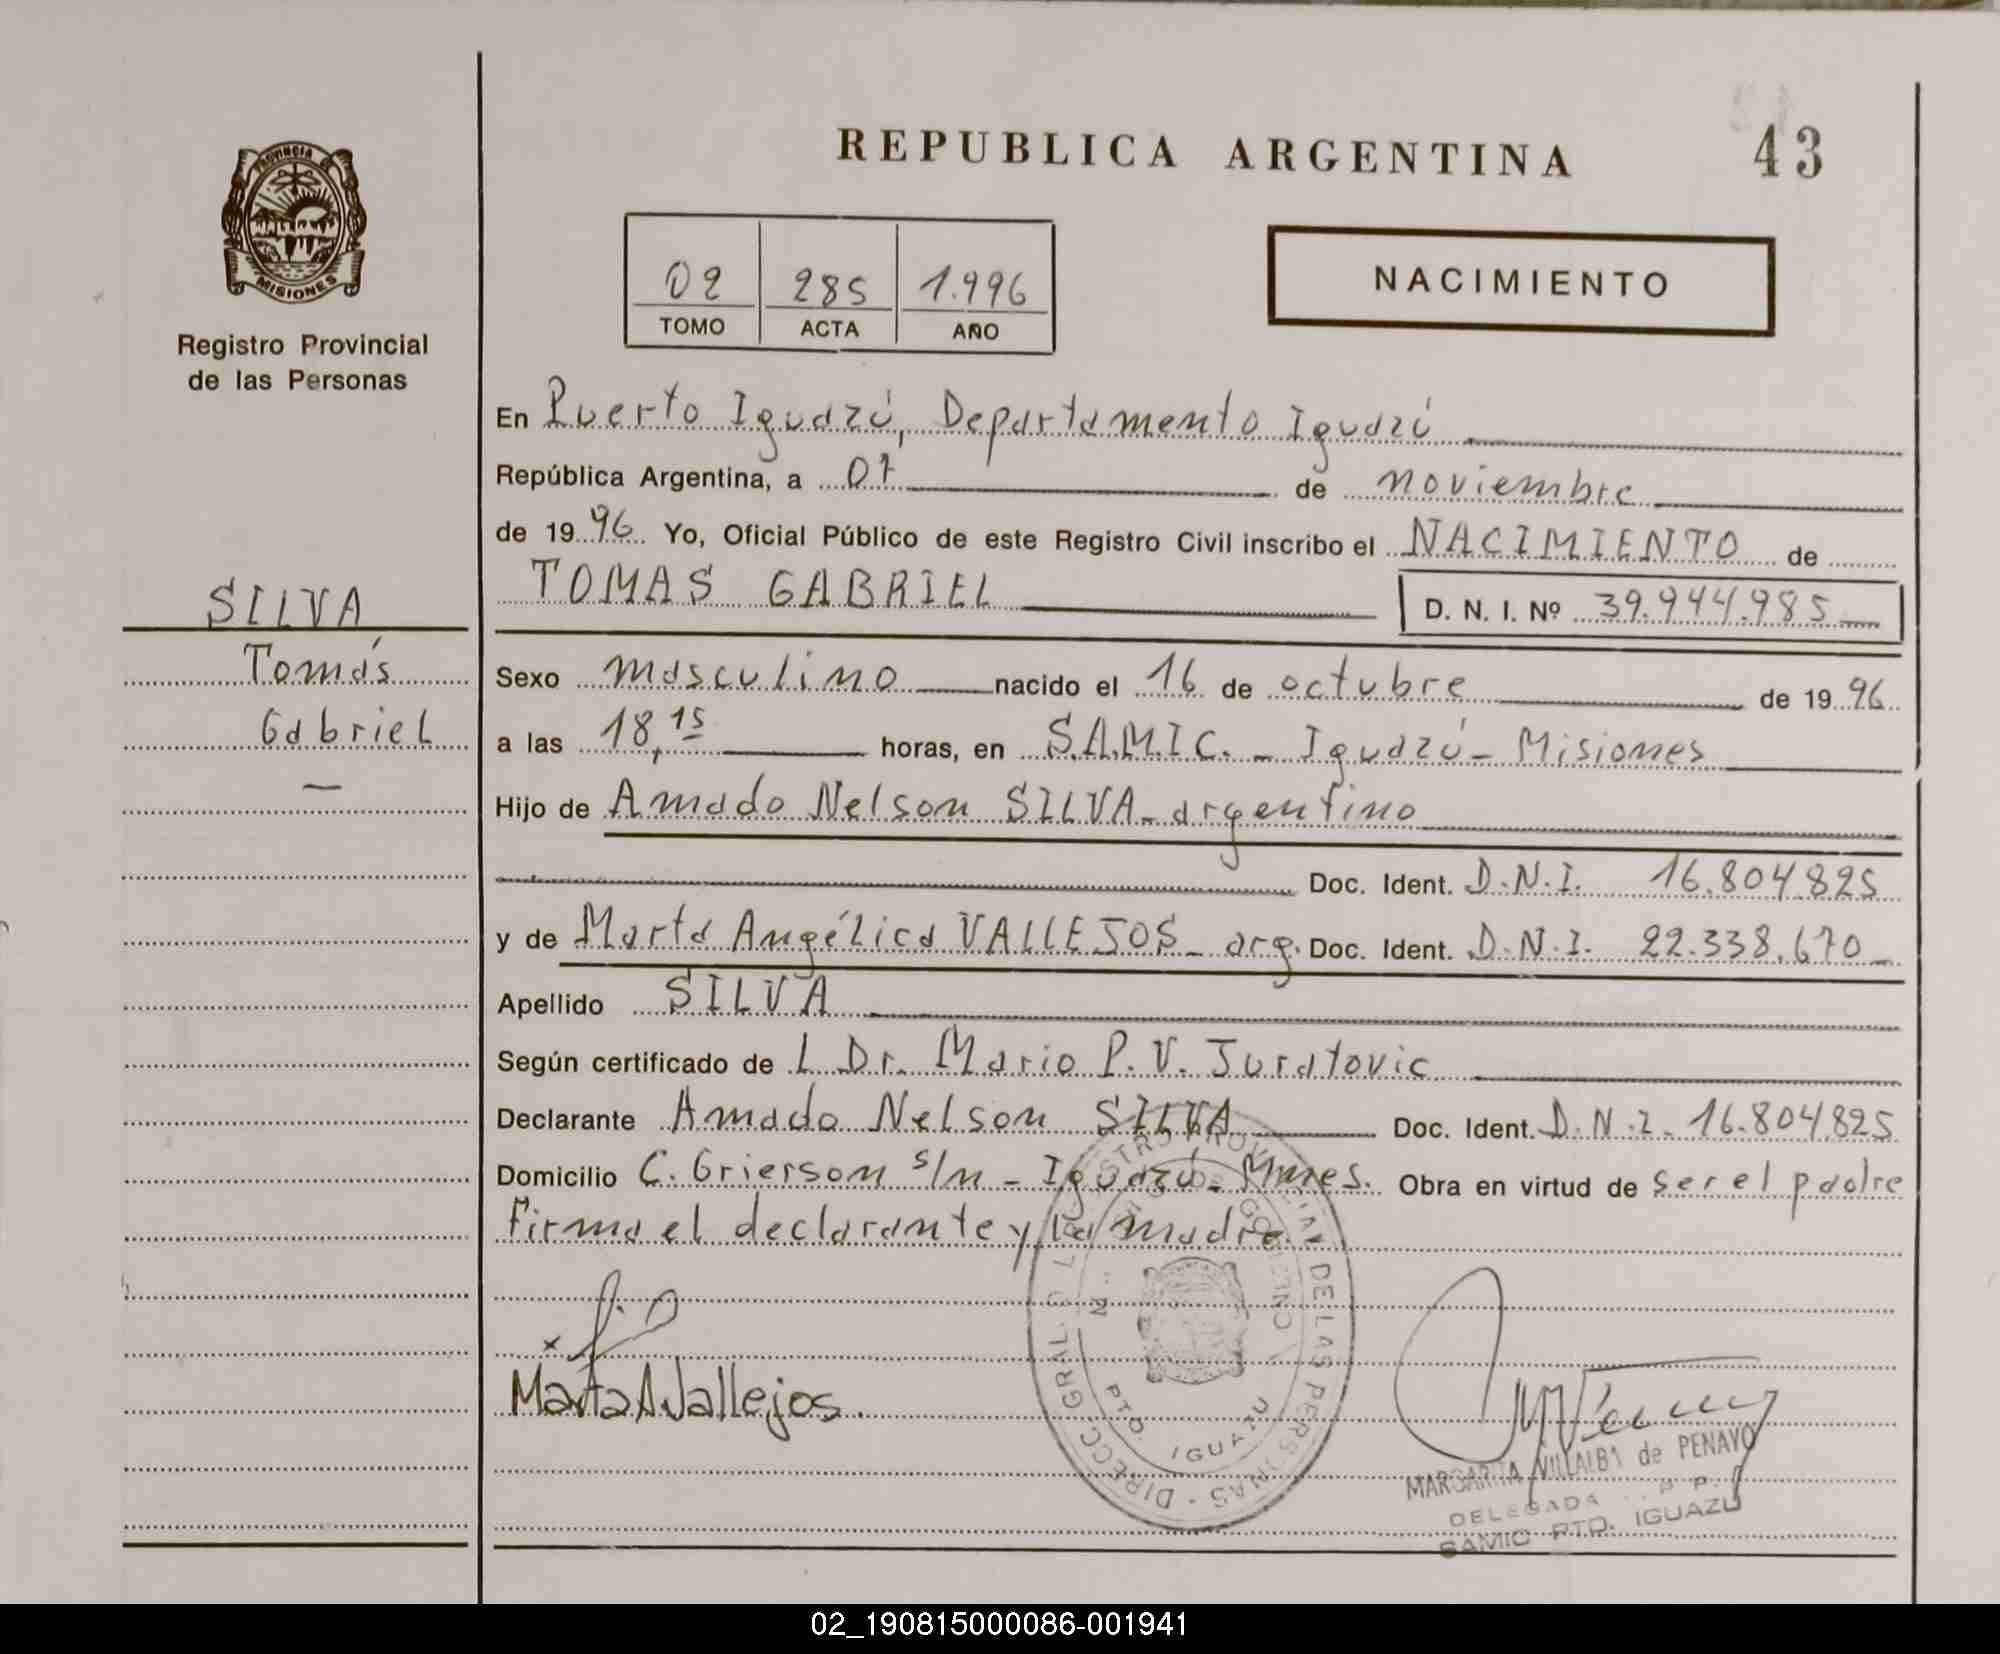 REPUBLICA ARGENTINA
43
PROVINCIA DE
MISIONES
Registro Provincial
de las Personas
02 285 1.996
TOMO ACTA AÑO
NACIMIENTO
SILVA
Tomás
Gabriel
—
En Puerto Iguazú, Departamento Iguazú
República Argentina, a 07 de noviembre
de 19 96 Yo, Oficial Público de este Registro Civil inscribo el NACIMIENTO de
TOMAS GABRIEL D. N. I. Nº 39.944.985
Sexo masculino nacido el 16 de octubre de 19 96
a las 18,15 horas, en S.A.M.I.C. - Iguazú - Misiones
Hijo de Amado Nelson SILVA - argentino
Doc. Ident. D.N.I. 16.804.825
y de Marta Angélica VALLEJOS - arg. Doc. Ident. D.N.I. 22.338.670
Apellido SILVA
Según certificado de L. Dr. Mario P. V. Juratovic
Declarante Amado Nelson SILVA Doc. Ident. D.N.I. 16.804.825
Domicilio C. Grierson s/n - Iguazú - Mnes. Obra en virtud de ser el padre
Firma el declarante y la madre
x
Marta A Vallejos.
DIRECC. GRAL. DE LAS PERSONAS
PTO. IGUAZU
MARGARITA VILLALBA de PENAYO
DELEGADA P. P.
SAMIC PTO. IGUAZU
02_190815000086-001941